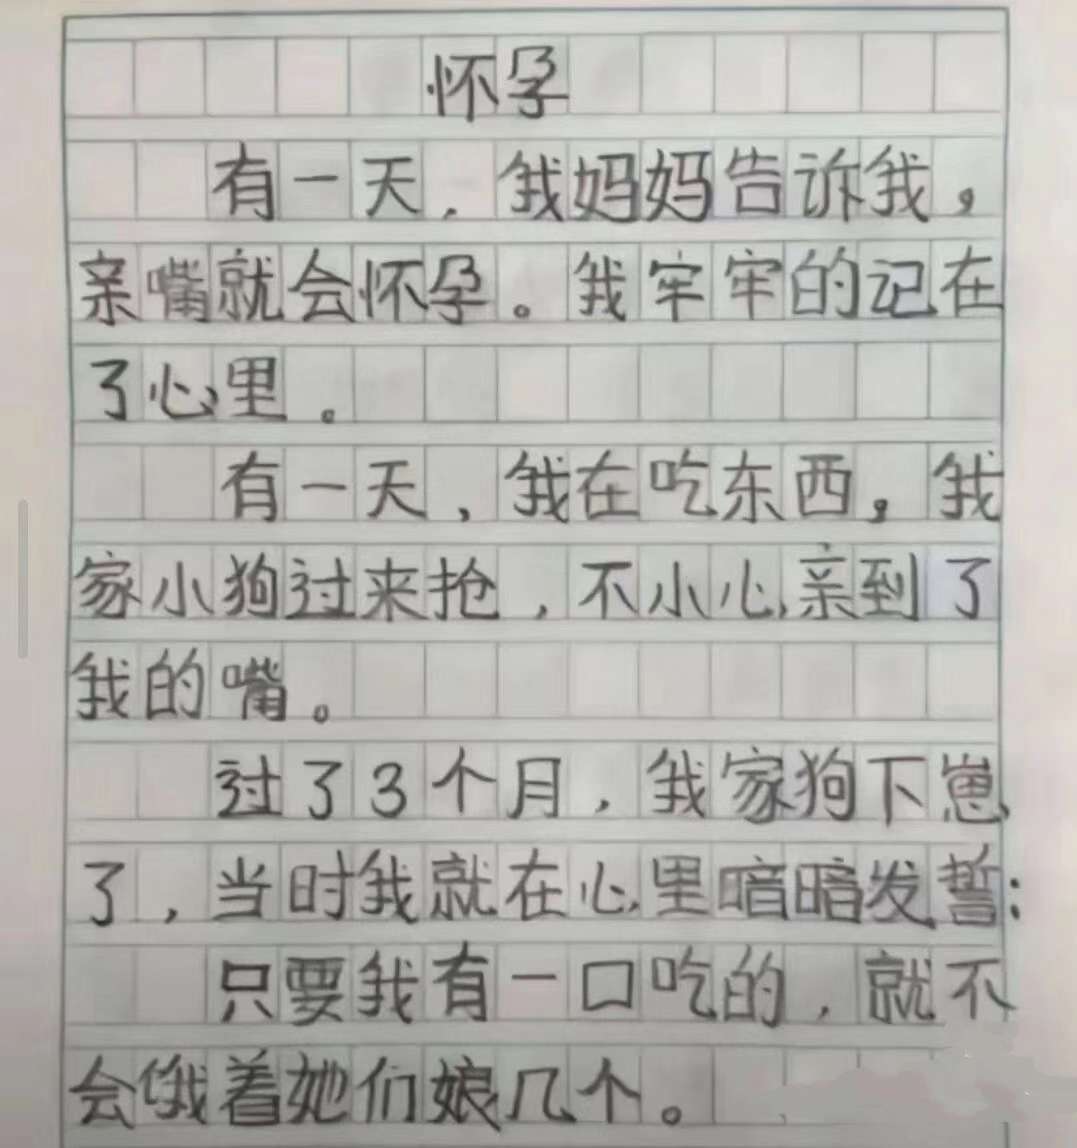 怀孕
有一天，我妈妈告诉我，
亲嘴就会怀孕。我牢牢的记在
了心里。
有一天，我在吃东西，我
家小狗过来抢，不小心亲到了
我的嘴。
过了3个月，我家狗下崽
了，当时我就在心里暗暗发誓：
只要我有一口吃的，就不
会饿着她们娘几个。